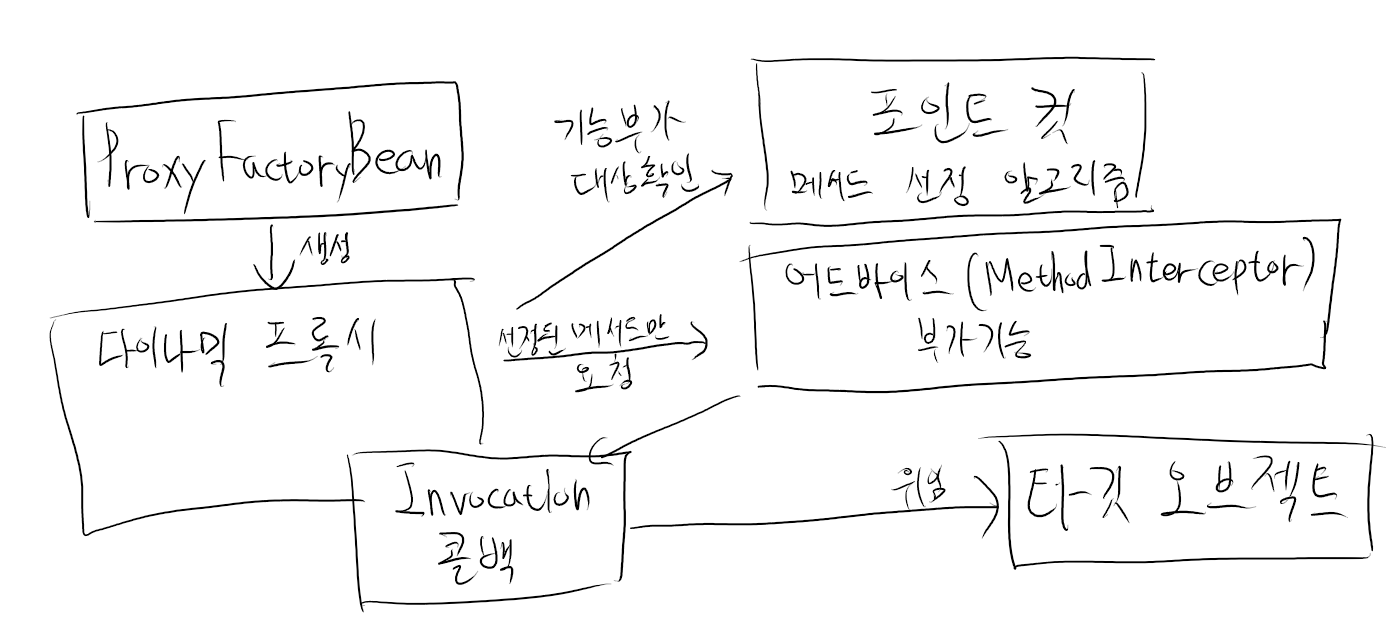 ProxyFactoryBean
생성
다이나믹 프록시
기능부가
대상확인
포인트 컷
메서드 선정 알고리즘
선정된 메서드만
요청
어드바이스 (MethodInterceptor)
부가기능
Invocation
콜백
위임
타깃 오브젝트